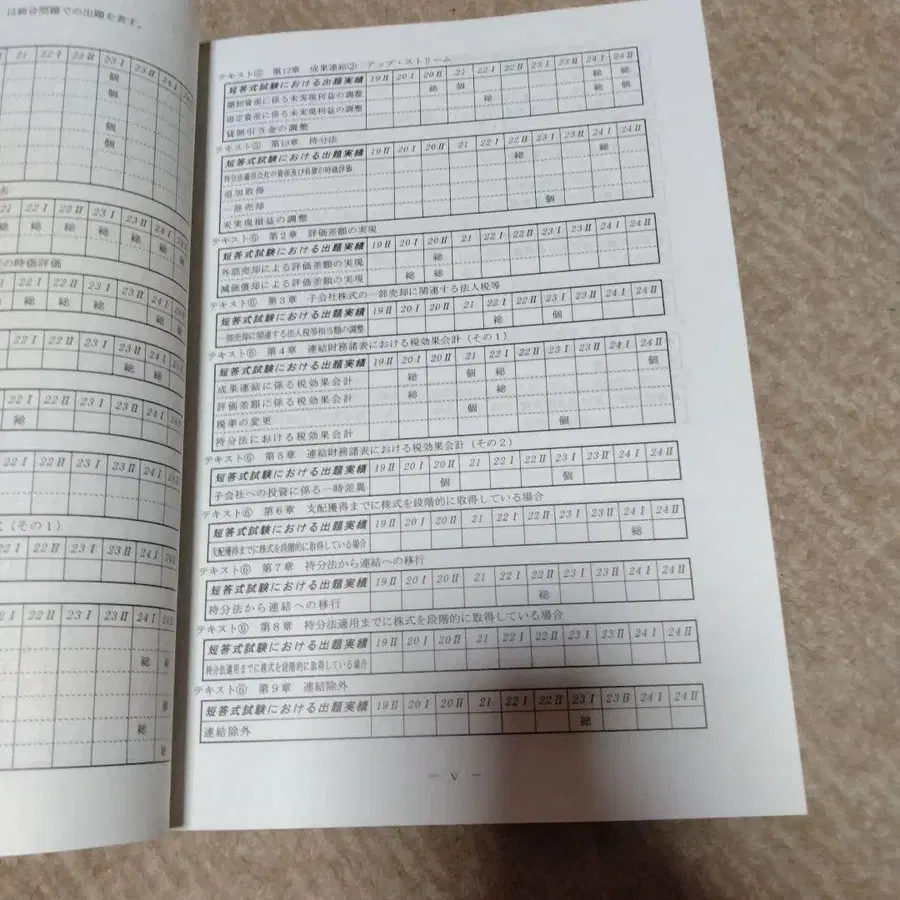 は総合問題での出題を表す。
21 22Ⅰ 22Ⅱ 23Ⅰ 23Ⅱ 24Ⅰ
個
個
個
個
法
21 22Ⅰ 22Ⅱ 23Ⅰ 23Ⅱ 24Ⅰ
総 総 総 総 総 総
の時価評価
式(その1)
テキスト⑤ 第12章 成果連結② アップ・ストリーム
短答式試験における出題実績 19Ⅱ 20Ⅰ 20Ⅱ 21 22Ⅰ 22Ⅱ 23Ⅰ 23Ⅱ 24Ⅰ 24Ⅱ
棚卸資産に係る未実現利益の調整 総 個 総 総
固定資産に係る未実現利益の調整 総 総 個
貸倒引当金の調整
テキスト⑤ 第13章 持分法
短答式試験における出題実績 19Ⅱ 20Ⅰ 20Ⅱ 21 22Ⅰ 22Ⅱ 23Ⅰ 23Ⅱ 24Ⅰ 24Ⅱ
持分法適用会社の資産及び負債の時価評価 総 総
追加取得
一部売却
未実現損益の調整 個
テキスト⑥ 第2章 評価差額の実現
短答式試験における出題実績 19Ⅱ 20Ⅰ 20Ⅱ 21 22Ⅰ 22Ⅱ 23Ⅰ 23Ⅱ 24Ⅰ 24Ⅱ
外部売却による評価差額の実現 総
減価償却による評価差額の実現 総 総
テキスト⑥ 第3章 子会社株式の一部売却に関連する法人税等
短答式試験における出題実績 19Ⅱ 20Ⅰ 20Ⅱ 21 22Ⅰ 22Ⅱ 23Ⅰ 23Ⅱ 24Ⅰ 24Ⅱ
一部売却に関連する法人税等相当額の調整 総 総
テキスト⑥ 第4章 連結財務諸表における税効果会計(その1)
短答式試験における出題実績 19Ⅱ 20Ⅰ 20Ⅱ 21 22Ⅰ 22Ⅱ 23Ⅰ 23Ⅱ 24Ⅰ 24Ⅱ
成果連結に係る税効果会計 総 個 総 個
評価差額に係る税効果会計 総 総
税率の変更 個
持分法における税効果会計 個
テキスト⑥ 第5章 連結財務諸表における税効果会計(その2)
短答式試験における出題実績 19Ⅱ 20Ⅰ 20Ⅱ 21 22Ⅰ 22Ⅱ 23Ⅰ 23Ⅱ 24Ⅰ 24Ⅱ
子会社への投資に係る一時差異 個 個
テキスト⑥ 第6章 支配獲得までに株式を段階的に取得している場合
短答式試験における出題実績 19Ⅱ 20Ⅰ 20Ⅱ 21 22Ⅰ 22Ⅱ 23Ⅰ 23Ⅱ 24Ⅰ 24Ⅱ
支配獲得までに株式を段階的に取得している場合 総
テキスト⑥ 第7章 持分法から連結への移行
短答式試験における出題実績 19Ⅱ 20Ⅰ 20Ⅱ 21 22Ⅰ 22Ⅱ 23Ⅰ 23Ⅱ 24Ⅰ 24Ⅱ
持分法から連結への移行 総
テキスト⑥ 第8章 持分法適用までに株式を段階的に取得している場合
短答式試験における出題実績 19Ⅱ 20Ⅰ 20Ⅱ 21 22Ⅰ 22Ⅱ 23Ⅰ 23Ⅱ 24Ⅰ 24Ⅱ
持分法適用までに株式を段階的に取得している場合
テキスト⑥ 第9章 連結除外
短答式試験における出題実績 19Ⅱ 20Ⅰ 20Ⅱ 21 22Ⅰ 22Ⅱ 23Ⅰ 23Ⅱ 24Ⅰ 24Ⅱ
連結除外 総
― Ⅴ ―